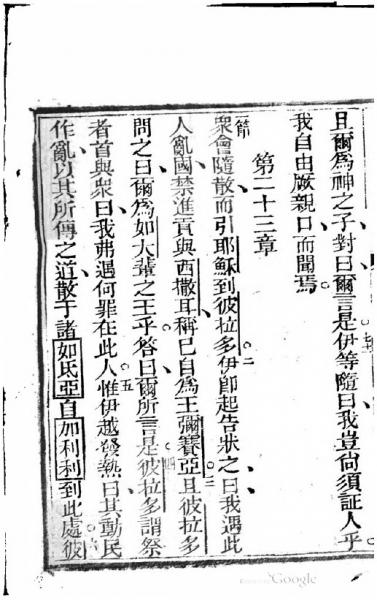 且爾為神之子對曰爾言是伊等隨曰我豈尚須証人乎
我自由厥親口而聞焉
第二十三章
節
眾會隨散而引耶穌到彼拉多二伊即起告狀之曰我遇此
人亂國禁進貢與西撒耳稱已自為王彌賽亞三且彼拉多
問之曰爾為如大輩之王乎答曰爾所言是四彼拉多謂祭
者首與眾曰我弗遇何罪在此人五惟伊越發熱曰其動民
作亂以其所傳之道散于諸如氐亞自加利利到此處六彼
Google